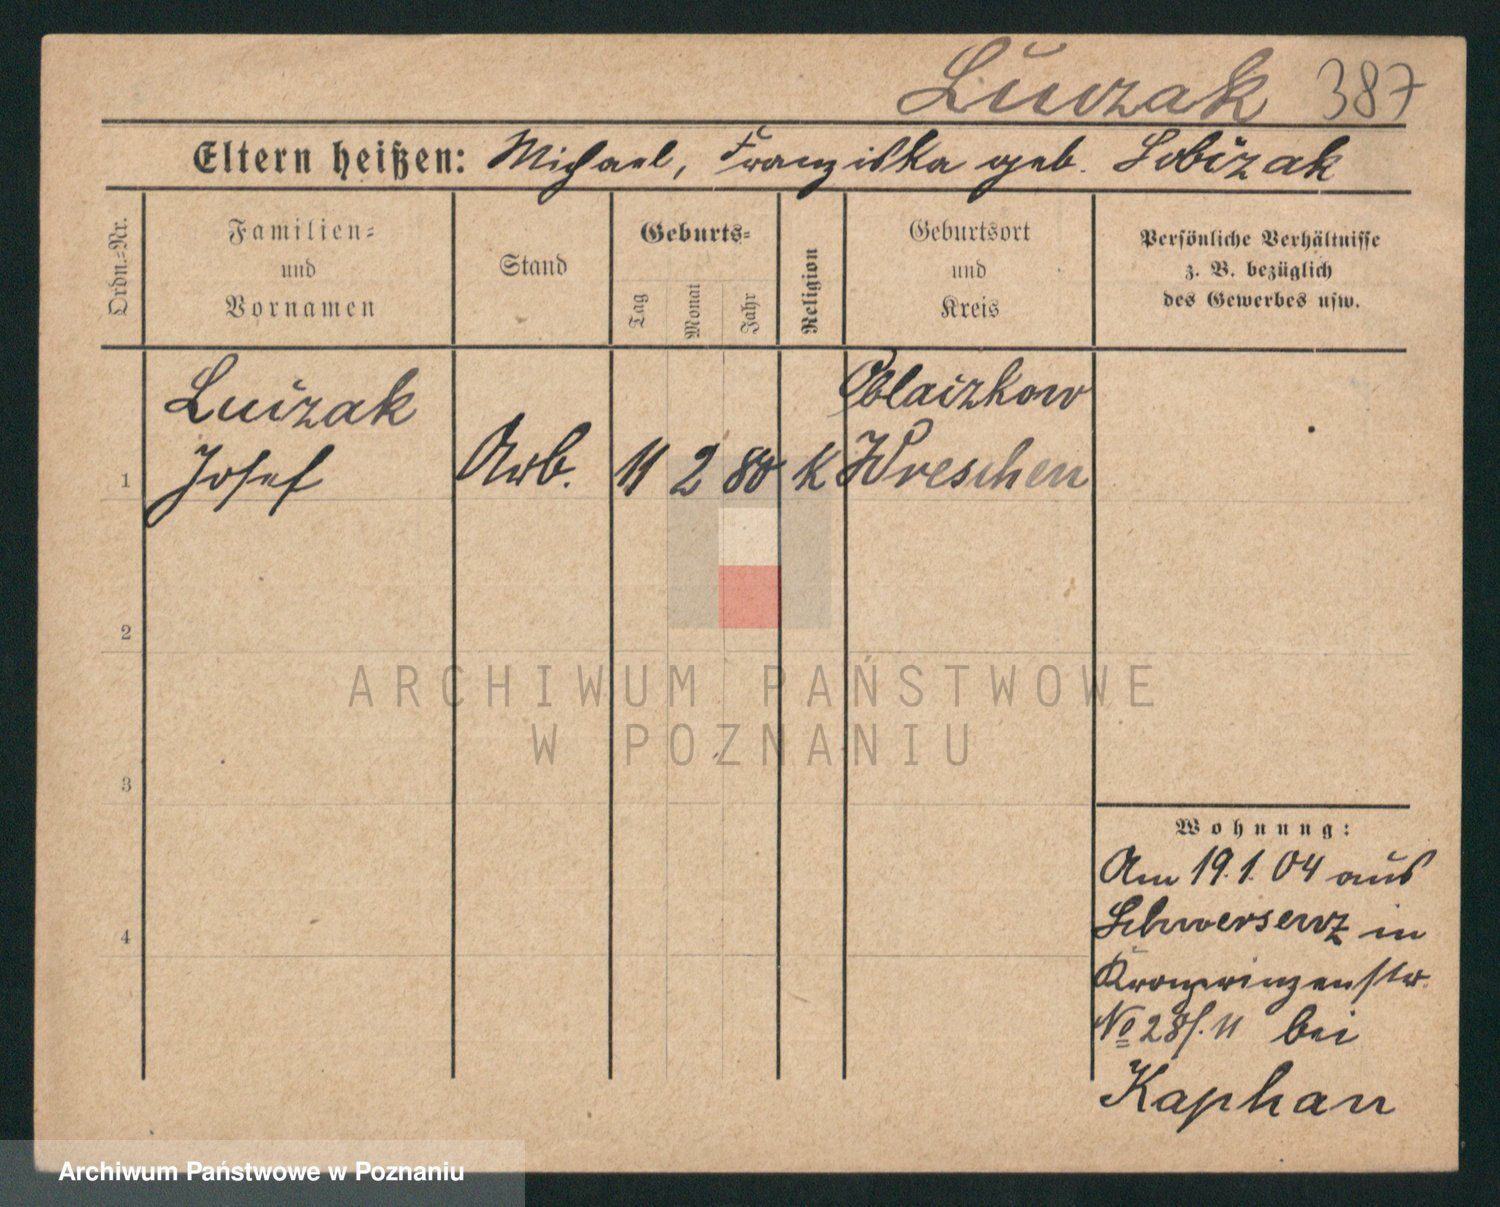 Luczak 387
Eltern heißen: Michael, Franziska geb. Sobczak
Ordn.-Nr.
Familien-
und
Vornamen
Stand
Geburts-
Tag
Monat
Jahr
Religion
Geburtsort
und
Kreis
Persönliche Verhältnisse
z. B. bezüglich
des Gewerbes usw.
Luczak
Josef
Arb. 11 2 80 K
Oblaczkowo
Wreschen
1
2
3
4
Wohnung:
Am 19.1.04 aus
Schwersenz in
Kronprinzenstr.
No 28/. 11 bei
Kaphan
ARCHIWUM PAŃSTWOWE
W POZNANIU
Archiwum Państwowe w Poznaniu